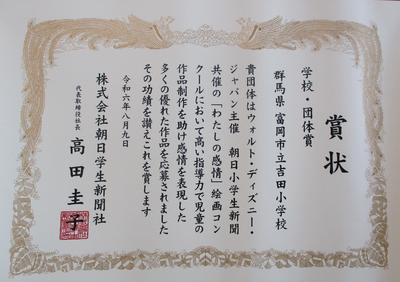 賞状
学校・団体賞
群馬県 富岡市立吉田小学校
貴団体はウォルト・ディズニー・
ジャパン主催 朝日小学生新聞
共催の「わたしの感情」絵画コン
クールにおいて高い指導力で児童の
作品制作を助け感情を表現した
多くの優れた作品を応募されました
その功績を讃えこれを賞します
令和六年八月九日
株式会社朝日学生新聞社
代表取締役社長 高田圭子